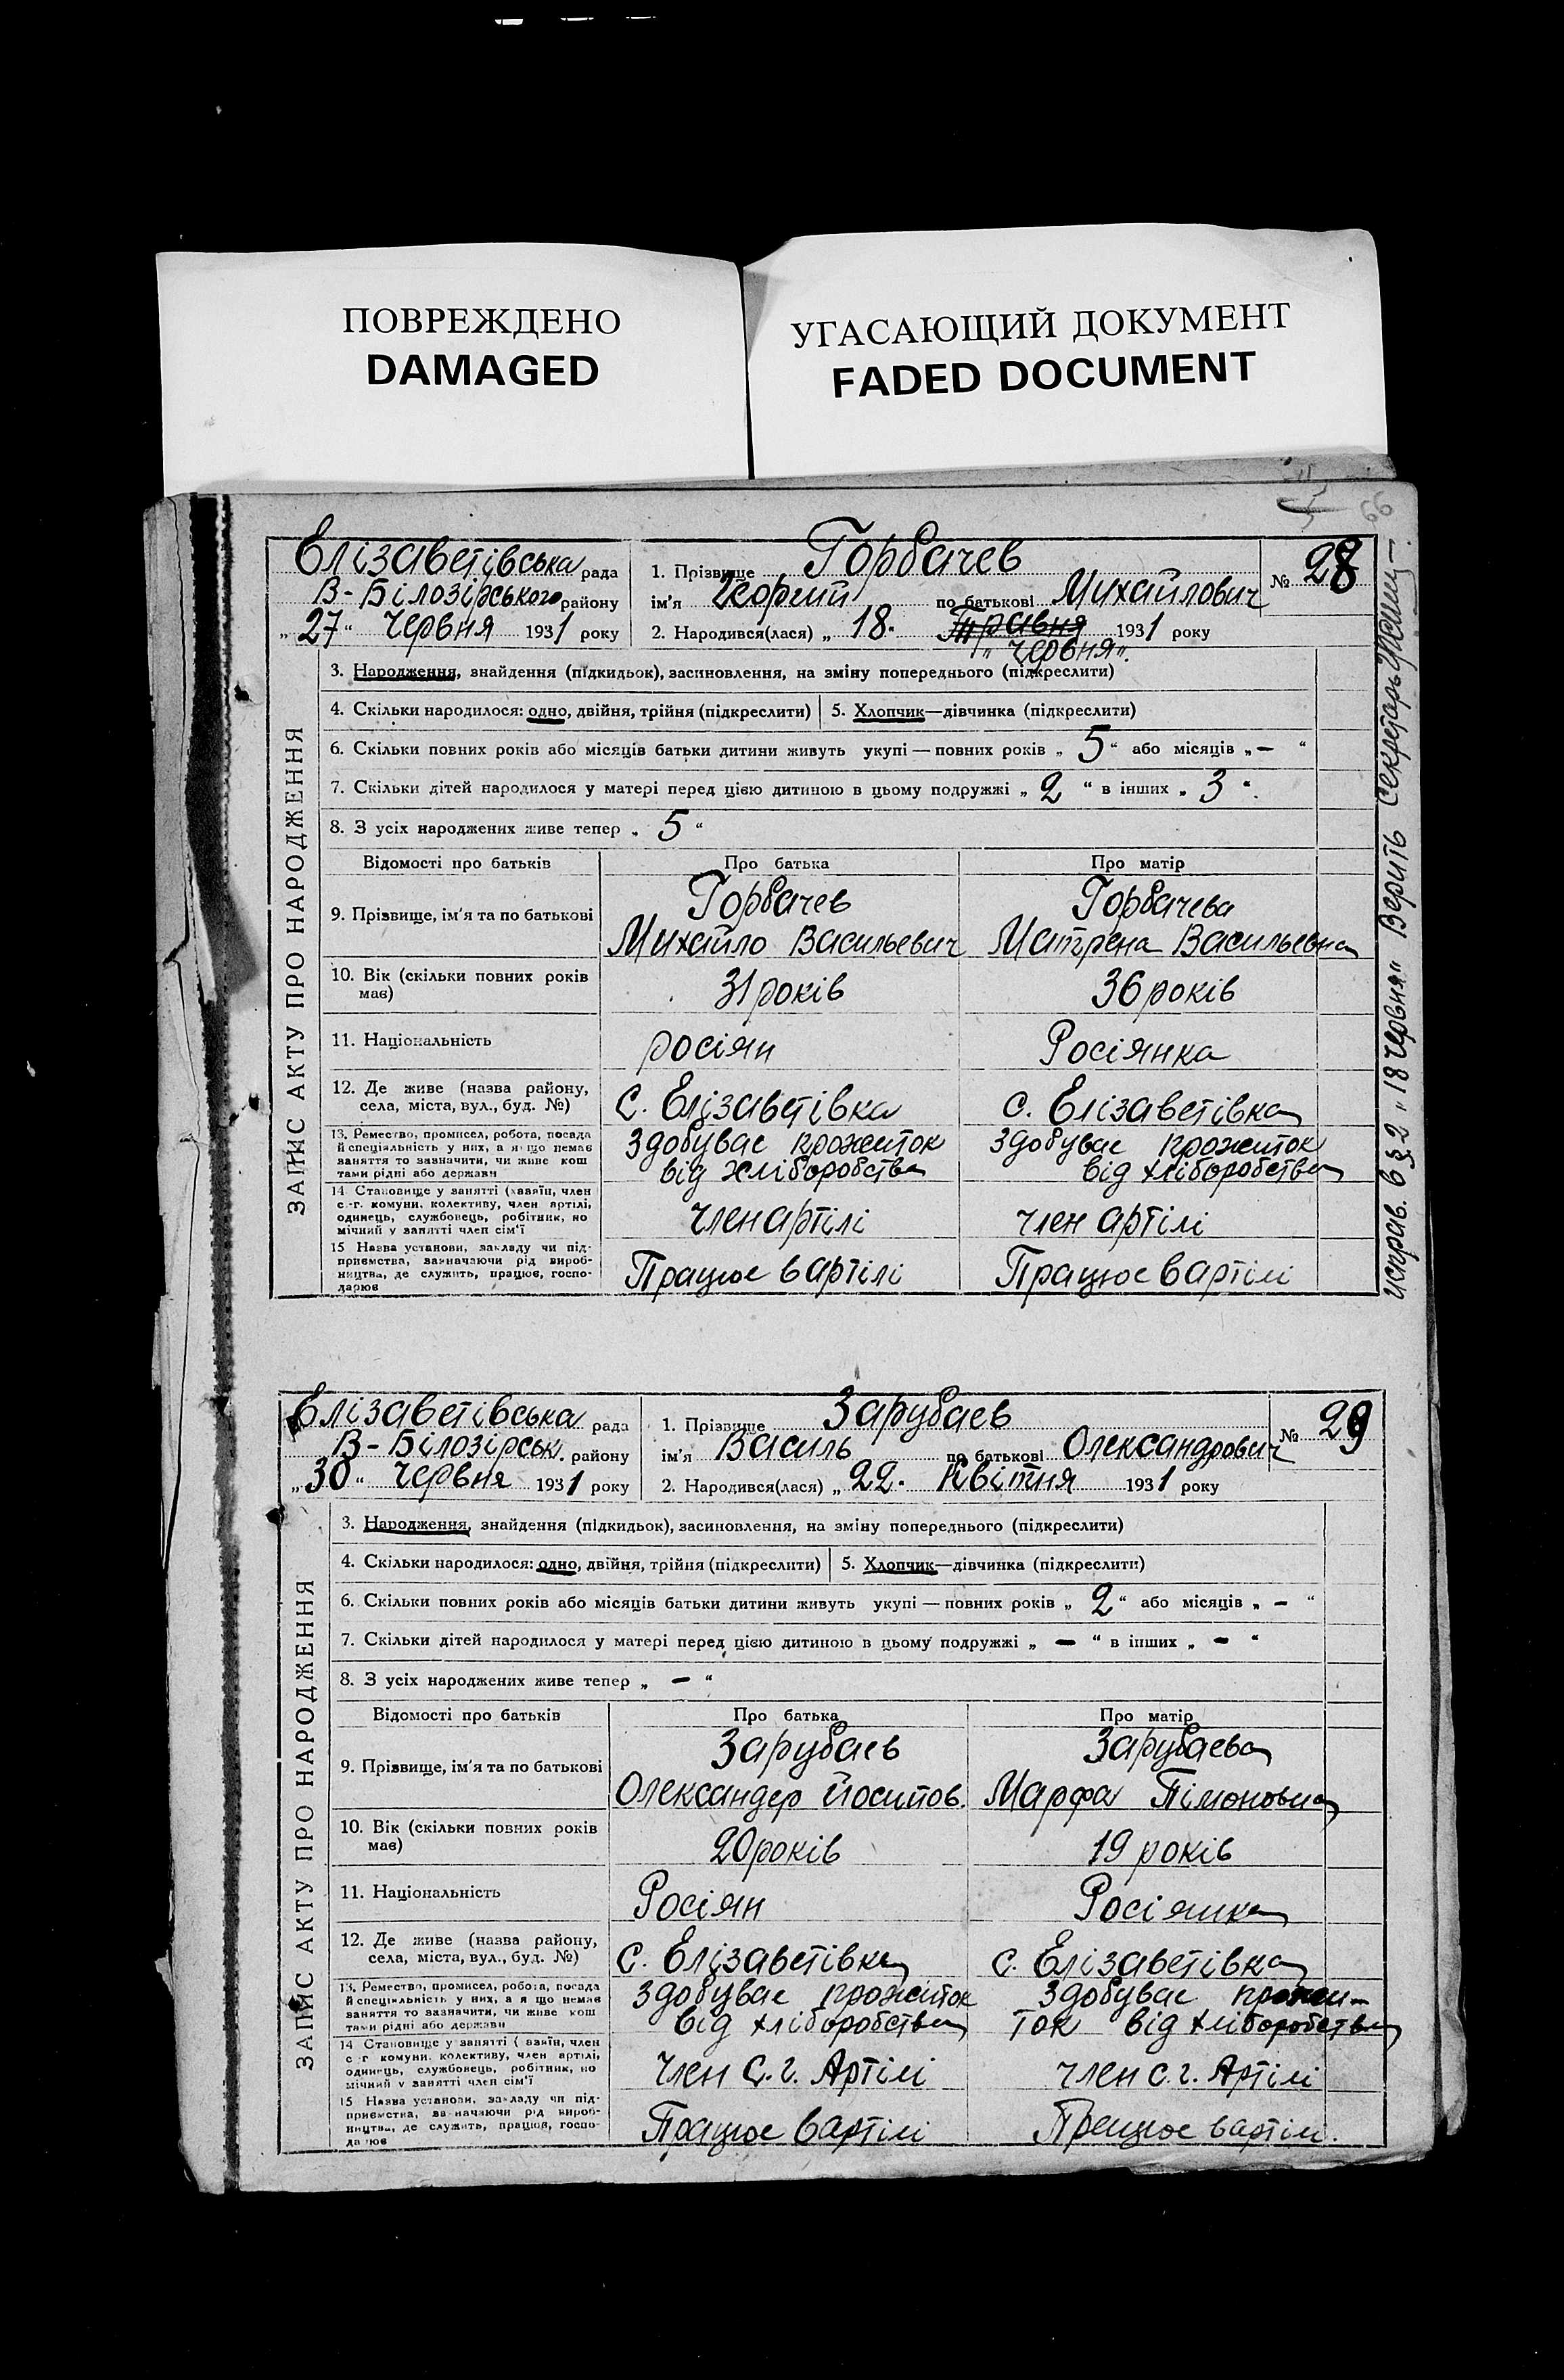 ПОВРЕЖДЕНО
DAMAGED
УГАСАЮЩИЙ ДОКУМЕНТ
FADED DOCUMENT
66
ЗАПИС АКТУ ПРО НАРОДЖЕННЯ
Елізаветівська рада
В-Білозірського району
„27“ Червня 1931 року
1. Прізвище Горбачев
ім'я Георгий по батькові Михайлович
№ 28
2. Народився(лася) „18“ Травня 1931 року
„Червня“.
3. Народження, знайдення (підкидьок), засиновлення, на зміну попереднього (підкреслити)
4. Скільки народилося: одно, двійня, трійня (підкреслити)
5. Хлопчик—дівчинка (підкреслити)
6. Скільки повних років або місяців батьки дитини живуть укупі — повних років „5“ або місяців „—“
7. Скільки дітей народилося у матері перед цією дитиною в цьому подружжі „2“ в інших „3“.
8. З усіх народжених живе тепер „5“
Відомості про батьків
Про батька
Про матір
9. Прізвище, ім'я та по батькові
Горбачев
Михайло Васильевич
Горбачева
Матрена Васильевна
10. Вік (скільки повних років
має)
31 років
36 років
11. Національність
росіян
Росіянка
12. Де живе (назва району,
села, міста, вул., буд. №)
с. Елізаветівка
с. Елізаветівка
13. Ремество, промисел, робота, посада
й спеціяльність у них, а якщо немає
заняття то зазначити, чи живе кош
тами рідні або держави
Здобуває прожиток
від хліборобства
Здобуває прожиток
від хліборобства
14 Становище у занятті (хазяїн, член
с.-г. комуни, колективу, член артілі,
одинець, службовець, робітник, по
мічний у занятті член сім'ї
член артілі
член артілі
15 Назва установи, закладу чи під-
приємства, зазначаючи рід вироб-
ництва, де служить, працює, госпо-
дарює
Працює в артілі
Працює в артілі
исправ. в § 2 „18 червня“ Верить Секретарь
ЗАПИС АКТУ ПРО НАРОДЖЕННЯ
Елізаветівська рада
В-Білозірськ. району
„30“ Червня 1931 року
1. Прізвище Зарубаев
ім'я Василь по батькові Олександрович
№ 29
2. Народився(лася) „22“ Квітня 1931 року
3. Народження, знайдення (підкидьок), засиновлення, на зміну попереднього (підкреслити)
4. Скільки народилося: одно, двійня, трійня (підкреслити)
5. Хлопчик—дівчинка (підкреслити)
6. Скільки повних років або місяців батьки дитини живуть укупі — повних років „2“ або місяців „—“
7. Скільки дітей народилося у матері перед цією дитиною в цьому подружжі „—“ в інших „—“
8. З усіх народжених живе тепер „—“
Відомості про батьків
Про батька
Про матір
9. Прізвище, ім'я та по батькові
Зарубаев
Олександер Йосипов.
Зарубаева
Марфа Пімоновна
10. Вік (скільки повних років
має)
20 років
19 років
11. Національність
Росіян
Росіянка
12. Де живе (назва району,
села, міста, вул., буд. №)
с. Елізаветівка
с. Елізаветівка
13. Ремество, промисел, робота, посада
й спеціяльність у них, а я що немає
заняття то зазначити, чи живе кош
тами рідні або держави
Здобуває прожиток
від хліборобства
Здобуває прожи-
ток від хліборобства
14 Становище у занятті ( азяїн, член
с г комуни, колективу, член артілі,
одинець, службовець, робітник, по
мічний у занятті член сім'ї
Член с.г. Артілі
член с.г. Артілі
15 Назва установи, закладу чи під-
приємства, зазначаючи рід вироб-
ництва, де служить, працює, госпо-
дарює
Працює в артілі
Працює в артілі.